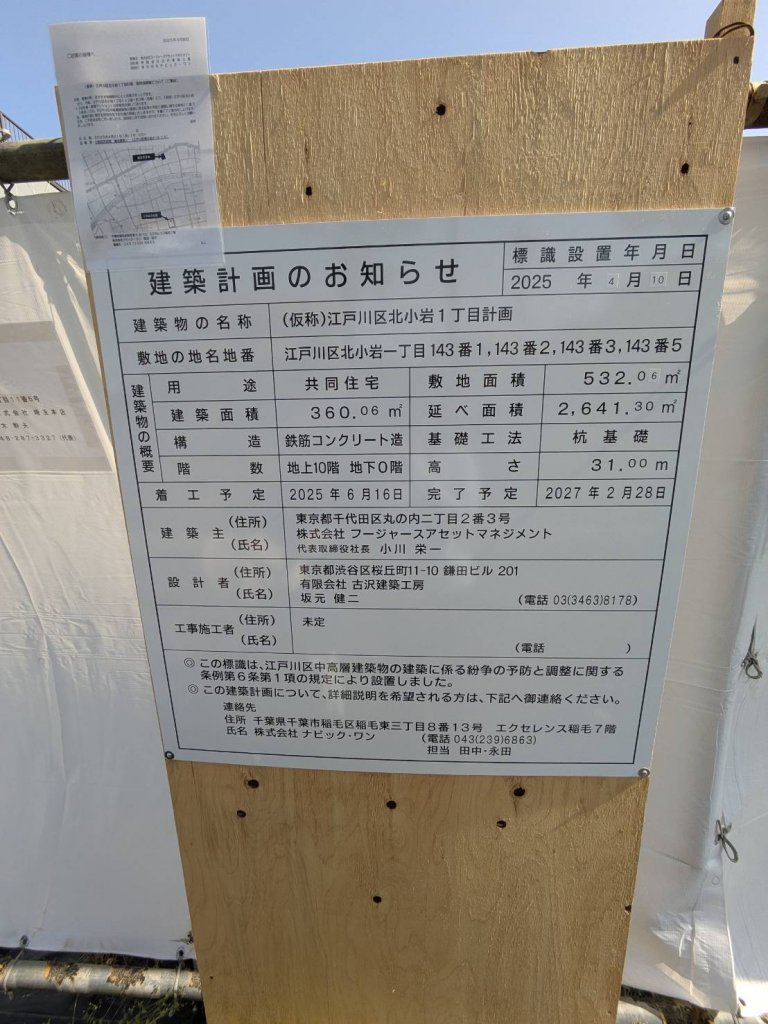 建築計画のお知らせ
標識設置年月日
2025 年 4 月 10 日
建築物の名称 (仮称)江戸川区北小岩1丁目計画
敷地の地名地番 江戸川区北小岩一丁目143番1,143番2,143番3,143番5
建築物の概要
用途 共同住宅 敷地面積 532.06㎡
建築面積 360.06㎡ 延べ面積 2,641.30㎡
構造 鉄筋コンクリート造 基礎工法 杭基礎
階数 地上10階 地下0階 高さ 31.00m
着工予定 2025年6月16日 完了予定 2027年2月28日
建築主 (住所) 東京都千代田区丸の内二丁目2番3号
(氏名) 株式会社 フージャースアセットマネジメント
代表取締役社長 小川 栄一
設計者 (住所) 東京都渋谷区桜丘町11-10 鎌田ビル 201
(氏名) 有限会社 古沢建築工房
坂元 健二 (電話 03(3463)8178)
工事施工者 (住所) 未定
(氏名) (電話 )
◎この標識は、江戸川区中高層建築物の建築に係る紛争の予防と調整に関する
条例第6条第1項の規定により設置しました。
◎この建築計画について、詳細説明を希望される方は、下記へ御連絡ください。
連絡先
住所 千葉県千葉市稲毛区稲毛東三丁目8番13号 エクセレンス稲毛7階
氏名 株式会社 ナビック・ワン (電話 043(239)6863)
担当 田中・永田